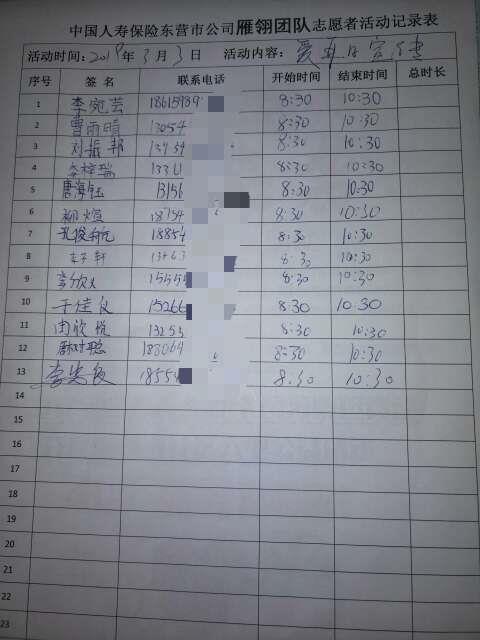 中国人寿保险东营市公司雁翎团队志愿者活动记录表
活动时间：2018年3月3日 活动内容：爱耳日宣传
序号 签名 联系电话 开始时间 结束时间 总时长
1 李宛芸 18615989 8:30 10:30
2 曹雨晴 13054 8:30 10:30
3 刘振邦 8:30 10:30
4 李梓瑞 13361 8:30 10:30
5 唐海钰 13156 8:30 10:30
6 柳煊 18754 8:30 10:30
7 孔俊航 18854 8:30 10:30
8 8:30 10:30
9 15554 8:30 10:30
10 于佳仪 15266 8:30 10:30
11 田欣悦 13255 8:30 10:30
12 183064 8:30 10:30
13 18554 8:30 10:30
14
15
16
17
18
19
20
21
22
23